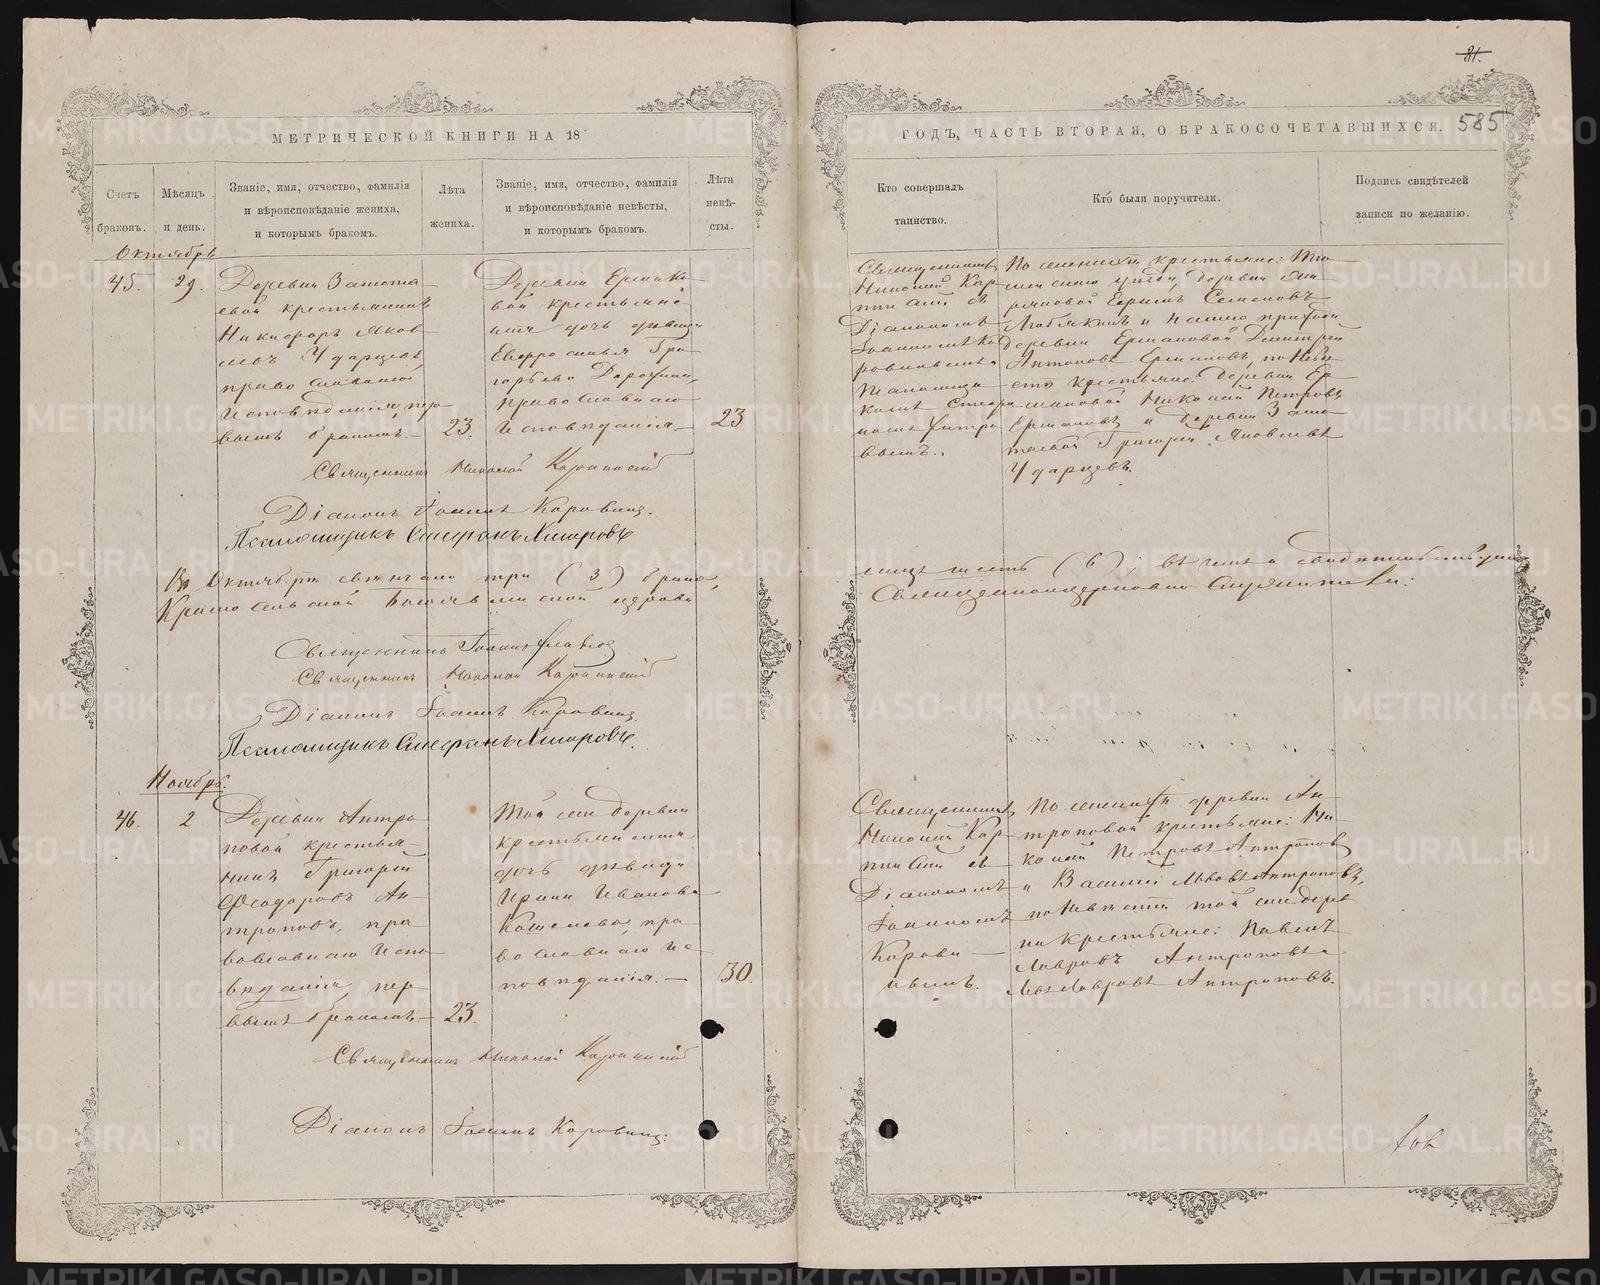 81.
585
МЕТРИЧЕСКОЙ КНИГИ НА 18
ГОДЪ, ЧАСТЬ ВТОРАЯ, О БРАКОСОЧЕТАВШИХСЯ.
Счетъ браковъ.
Мѣсяцъ и день.
Званіе, имя, отчество, фамилія
и вѣроисповѣданіе жениха,
и которымъ бракомъ.
Лѣта
жениха.
Званіе, имя, отчество, фамилія
и вѣроисповѣданіе невѣсты,
и которымъ бракомъ.
Лѣта
невѣ-
сты.
Кто совершалъ
таинство.
Кто были поручители.
Подпись свидѣтелей
записи по желанію.
Октябрь
45.
29.
Деревни
крестьянинъ
Никифоръ Яков
левъ Ударцевъ,
православнаго
исповѣданія, пер
вымъ бракомъ.
23.
Деревни Ермако
вой крестьяни
на дочь дѣвица
Евфросинья Гри
горьева
православнаго
исповѣданія.
23
Священникъ
Николай Кар
пинскій съ
Діакономъ
Іоанномъ Ко
ровинымъ и
Псаломщи
комъ Стефа
номъ
вымъ.
По женихѣ крестьяне:
уѣзда, деревни
Ефимъ Семеновъ
и
деревни Ермаковой Дмитрій
Антоновъ Ермаковъ, по невѣ
стѣ крестьяне: деревни Ер
маковой Николай Петровъ
Ермаковъ и деревни
Григорій Яковлевъ
Ударцевъ.
Священникъ Николай Карпинскій
Діаконъ Іоаннъ Коровинъ.
Псаломщикъ Стефанъ
Въ Октябрѣ свѣнчано три (3) брака,
лицъ шесть (6); въ чемъ и свидѣтельствуемъ
Богоявленской церкви
Священноцерковно служители:
Священникъ Іоаннъ
Священникъ Николай Карпинскій
Діаконъ Іоаннъ Коровинъ.
Псаломщикъ Стефанъ
Ноябрь.
46.
2
Деревни Антро
повой крестья
нинъ Григорій
Феодоровъ Ан
троповъ, пра
вославнаго испо
вѣданія, пер
вымъ бракомъ
23.
Той же деревни
крестьянина
дочь дѣвица
Ирина Иванова
Кошелева, пра
вославнаго ис
повѣданія.
30.
Священникъ
Николай Кар
пинскій съ
Діакономъ
Іоанномъ
Корови
нымъ.
По женихѣ деревни Ан
троповой крестьяне: Ни
колай Петровъ Антроповъ
и Василій Львовъ Антроповъ,
по невѣстѣ той же дерев
ни крестьяне: Павелъ
Лавровъ Антроповъ и
Левъ Лавровъ Антроповъ.
Священникъ Николай Карпинскій
Діаконъ Іоаннъ Коровинъ.
METRIKI.GASO-URAL.RU